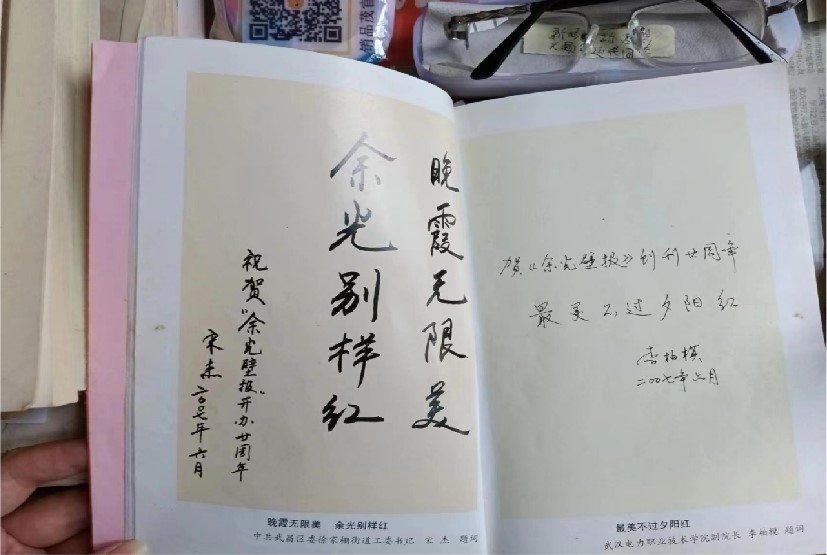 晚霞无限美
余光别样红
祝贺“余光壁报”开办廿周年
宋杰
二〇〇七年六月
晚霞无限美 余光别样红
中共武昌区委徐家棚街道工委书记 宋 杰 题词
贺《余光壁报》创刊廿周年
最美不过夕阳红
李柏模
二00七年六月
最美不过夕阳红
武汉电力职业技术学院副院长 题词